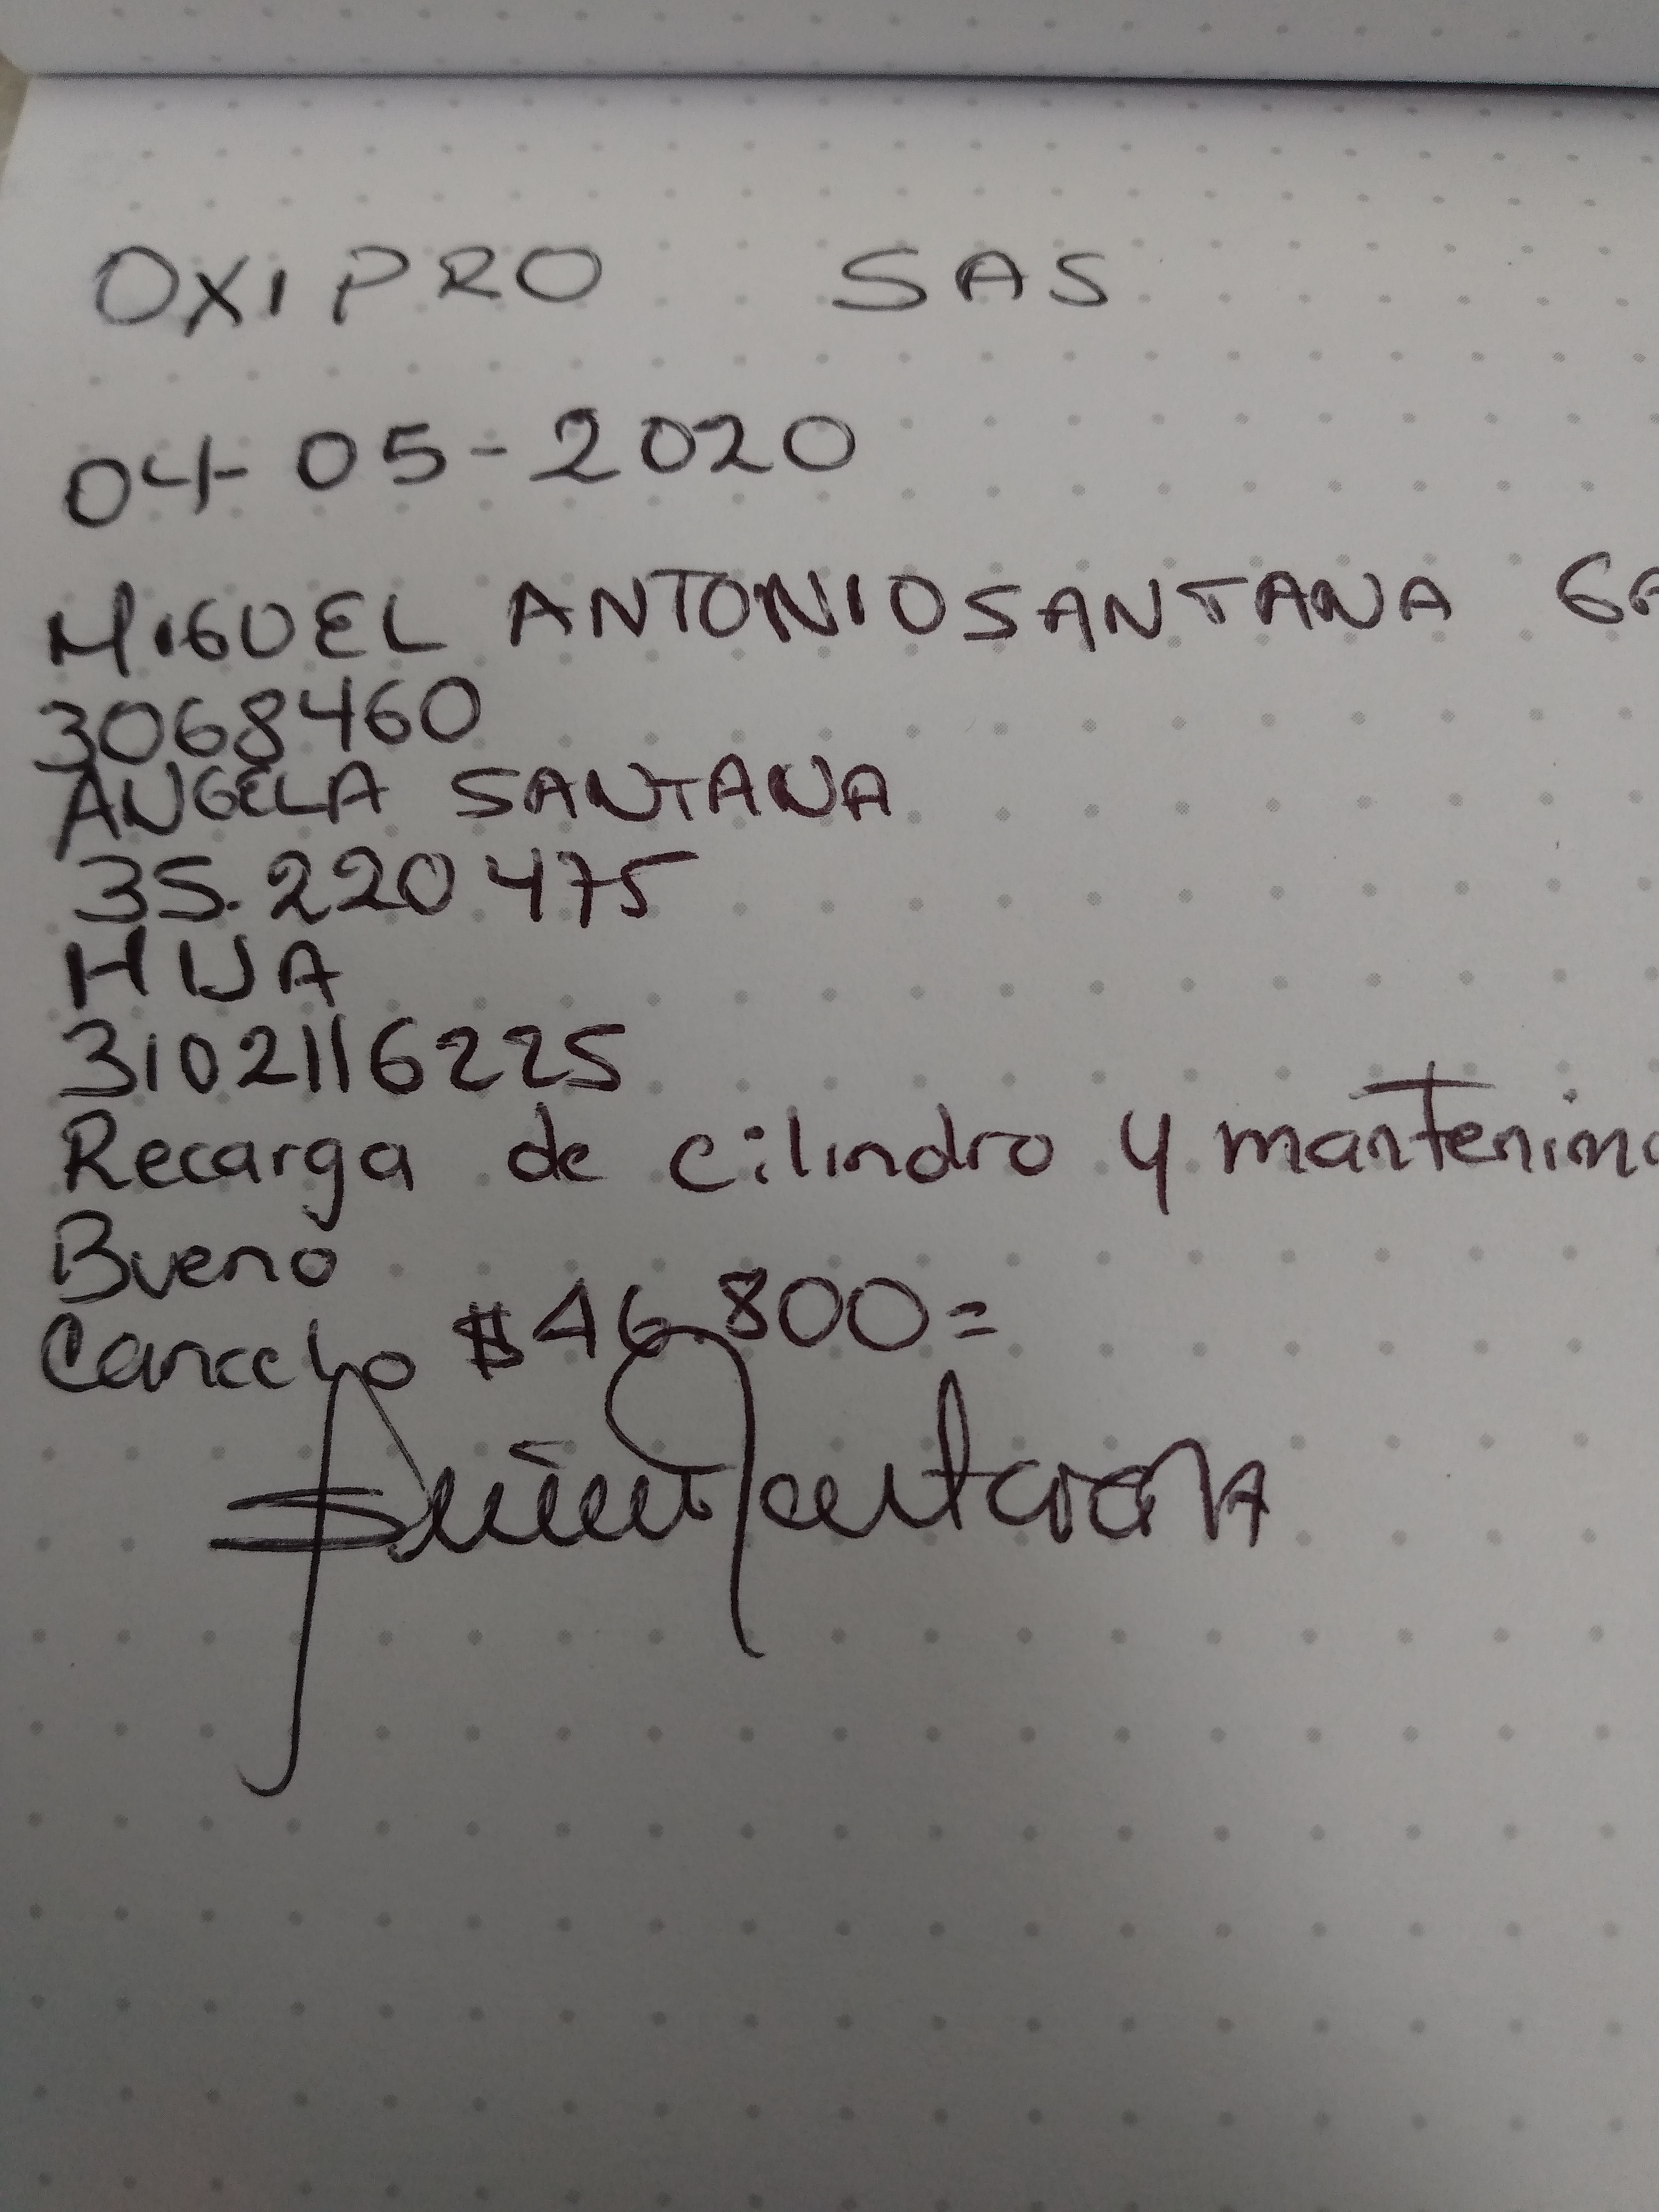 OXIPRO SAS
04-05-2020
MIGUEL ANTONIO SANTANA GA
3068460
ANGELA SANTANA
35.220475
HIJA
3102116225
Recarga de cilindro y mantenim
Bueno
Cancelo $46.800=